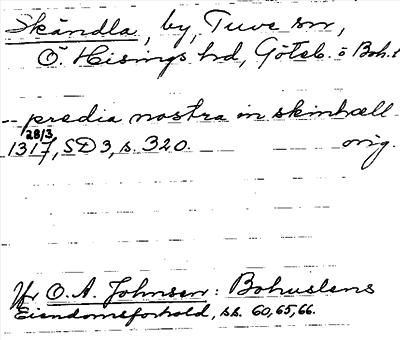 Skändla, by, Tuve sn,
Ö. Hisings hd, Göteb. o Boh. l
-- predia nostra in skinhæll
28/3
1317, SD 3, s. 320. orig.
Jfr O. A. Johnsen: Bohuslens
Eiendomsforhold, ss. 60, 65, 66.